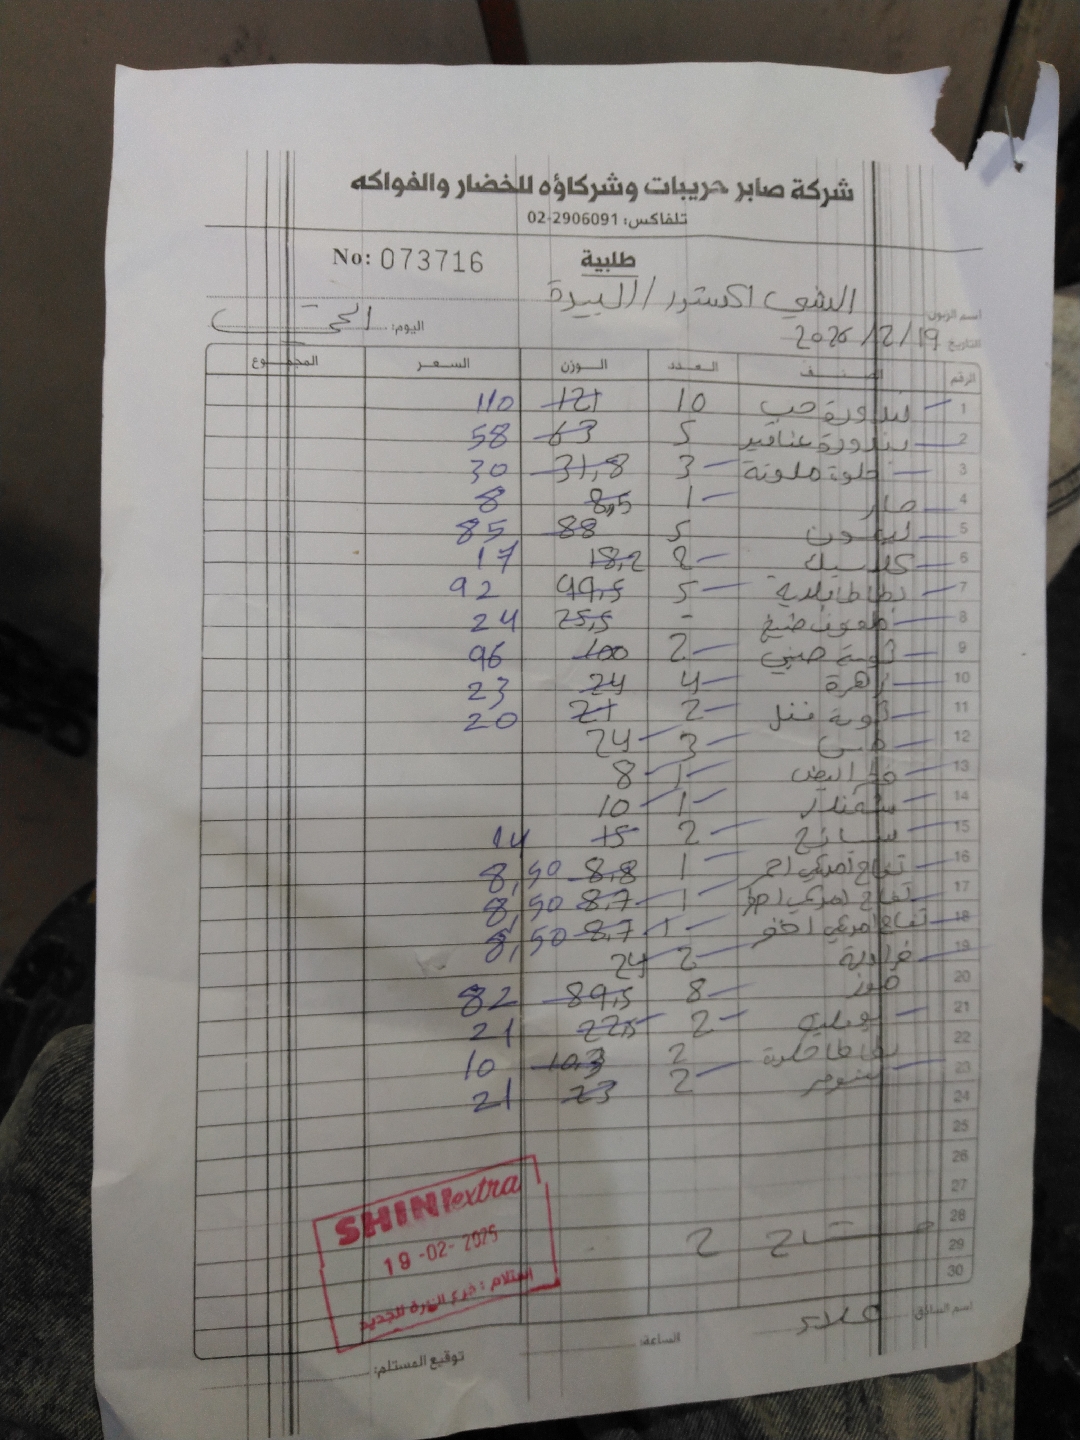 شركة صابر حريبات وشركاؤه للخضار والفواكه
تلفاكس: 02-2906091
طلبية No: 073716
اسم الزبون: الشني اكسترا /
التاريخ 19/2/2026 اليوم:
الرقم الصنف العدد الوزن السعر المجموع
1 بندورة حب 10 121 110
2 بندورة عناقيد 5 63 58
3 حلوة ملونة 3 31,8 30
4 حار 1 8,5 8
5 ليمون 5 88 85
6 كلاسيك 2 18,2 17
7 بطاطا بلدية 5 99,5 92
8 - 25,5 24
9 ثومة صيني 2 100 96
10 زهرة 4 24 23
11 2 21 20
12 خس 3 24
13 1 8
14 شمندر 1 10
15 2 15 14
16 تفاح امريكي احمر 1 8,8 8,50
17 تفاح امريكي 1 8,7 8,50
18 تفاح امريكي اخضر 1 8,7 8,50
19 2 24
20 موز 8 89,5 82
21 بوملية 2 22,5 21
22 بطاطا حلوة 2 10,3 10
23 2 23 21
24
25
26
27
28
29 2
30
SHINI extra
19-02-2025
استلام: فرع البيرة الجديد
اسم السائق: علاء الساعة: توقيع المستلم: